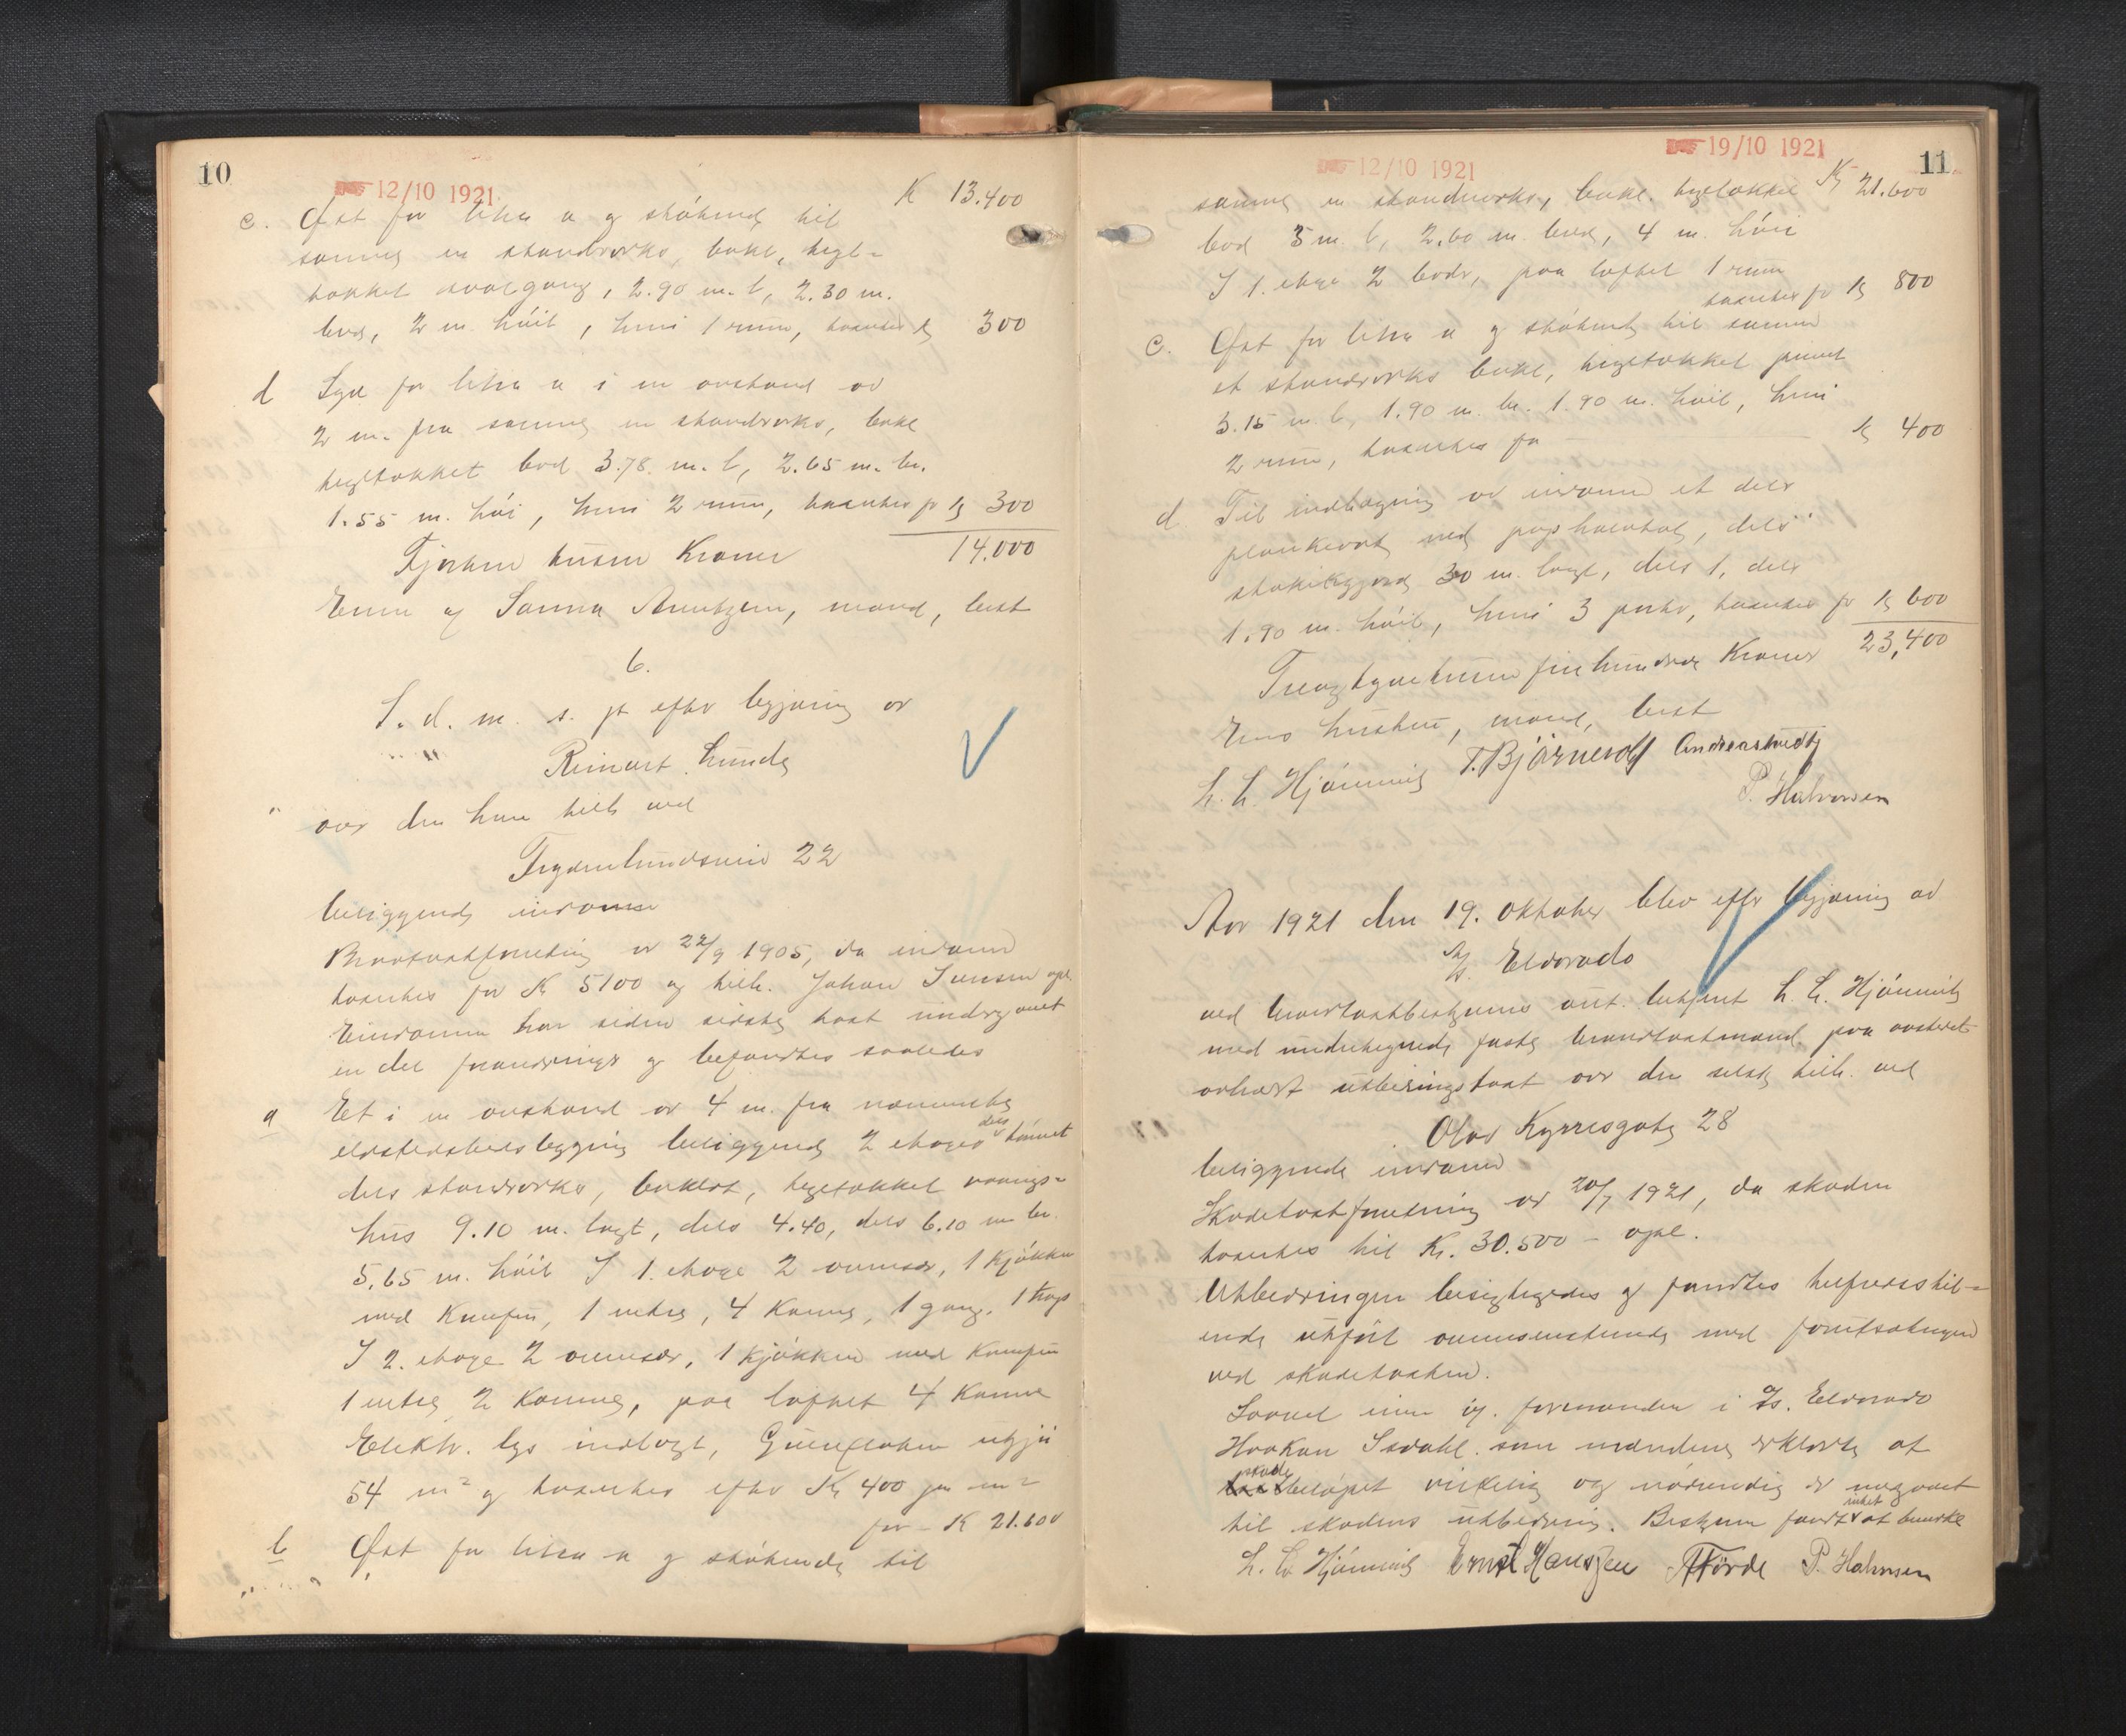 10
12/10 1921
K 13.400
c. Øst for litra a og støtende til
samme en standværks, bokl, tegl-
tækket svalgang, 2.90 m. l, 2.30 m.
bred, 2 m. høit, hvori 1 rum, takseres K 300
d Syd for litra a i en avstand av
2 m. fra samme en standværks, bokl
tegltækket bod 3.78. m. l, 2.65 m. br.
1.55 m. høi, hvori 2 rum, takseres for K 300
14.000
Fjorten tusen Kroner
Eiere og Sanna Arentzen, mand, best
6.
S. d. m. s. st efter begjæring av
Reinert Lunde
over den ham tilh ved
Frydenlundsvei 22
beliggende eiendom
Brandtakstforretning av 22/9 1905, da eiendommen
takseres for K 5100 og tilh. Johan Iversen opl.
Eiendommen har siden sidste takst undergaaet
en del forandringer og befandtes saaledes
a Et i en avstand av 4 m. fra nærmeste
bebyggelse beliggende 2 etages dels tømret
dels standværks, boklædt, tegltækket vaanings-
hus 9.10 m. langt, dels 4.40, dels 6.10 m br.
5.65 m. høit I 1. etage 2 værelser, 1 kjøkken
med Komfur, 1 entre, 4 Kamre, 1 gang, 1 trap
I 2. etage 2 værelser, 1 kjøkken med Komfur
1 entre 2 Kamre, paa loftet 4 Kamre
Elektr. lys indlagt, Grundflaten utgjør
54 m² og takseres efter K 400 pr m²
for - K 21.600
b Øst for litra a og støtende til
11
12/10 1921
19/10 1921
K 21.600
samme en standværks, bokl. tegltækket
bod 5 m. l, 2.60 m. bred, 4 m. høi
I 1. etage 2 boder, paa loftet 1 rum
takseres for K 800
c. Øst for litra a og støtende til samme
et standværks bokl, tegltækket privet
3.15 m. l, 1.90 m. br. 1.90 m. høit, hvori
2 rum, takseres for K 400
d Til indhegning av eiendommen et dels
plankeværk med papbeklædning, dels
stakitgjerde 30 m. langt, dels 1, dels
1.90 m. høit, hvori 3 porter, takseres for K 600
23,400
Treogtyvetusen fire hundrede Kroner
Eiers hustru, mand, best
L. L. Hjönnevåg T. Björnevold Andreas Lundby
P. Halvorsen
Aar 1921 den 19. oktober blev efter begjæring av
A/s. Eldorado
ved brandtakstbestyrerens aut. bitjent L. L. Hjönnevåg
med undertegnede faste brandtakstmænd paa aasteder
avholdt utbedringstakst over den selsk tilh. ved
Olav Kyrresgate 28
beliggende eiendom
Skadetakstforretning av 20/7 1921, da skaden
takseres til Kr. 30.500 - opl.
Utbedringen besigtigedes og fandtes tilfredsstil-
lende utført overensstemmende med forutsætningen
ved skadetaksten.
Saavel eier og. formanden i A/s. Eldorado
Haakon Isdahl. som mændene erklærte at
skade beløpet virkelig og nødvendig er medgaaet
til skadens utbedring. Bestyrer fandt intet at bemerke
L. L. Hjönnevåg Ernst Hanszen A Førde P. Halvorsen